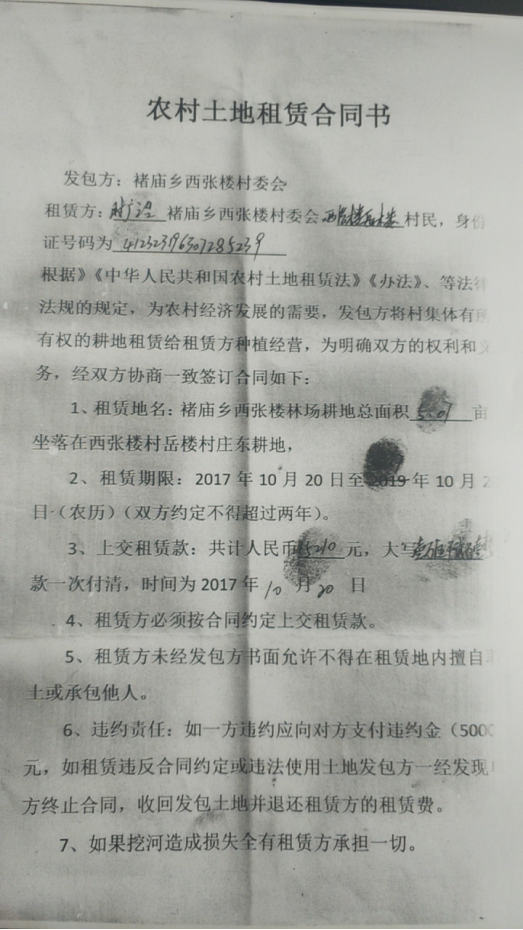 农村土地租赁合同书
发包方：褚庙乡西张楼村委会
租赁方： 褚庙乡西张楼村委会 村民，身份
证号码为
根据》《中华人民共和国农村土地租赁法》《办法》、等法律
法规的规定，为农村经济发展的需要，发包方将村集体有所
有权的耕地租赁给租赁方种植经营，为明确双方的权利和义
务，经双方协商一致签订合同如下：
1、租赁地名：褚庙乡西张楼林场耕地总面积 5.07 亩
坐落在西张楼村岳楼村庄东耕地，
2、租赁期限：2017年10月20日至2019年10月2
日（农历）（双方约定不得超过两年）。
3、上交租赁款：共计人民币 元，大写
款一次付清，时间为2017年10月20日
4、租赁方必须按合同约定上交租赁款。
5、租赁方未经发包方书面允许不得在租赁地内擅自
土或承包他人。
6、违约责任：如一方违约应向对方支付违约金（5000
元，如租赁违反合同约定或违法使用土地发包方一经发现
方终止合同，收回发包土地并退还租赁方的租赁费。
7、如果挖河造成损失全有租赁方承担一切。